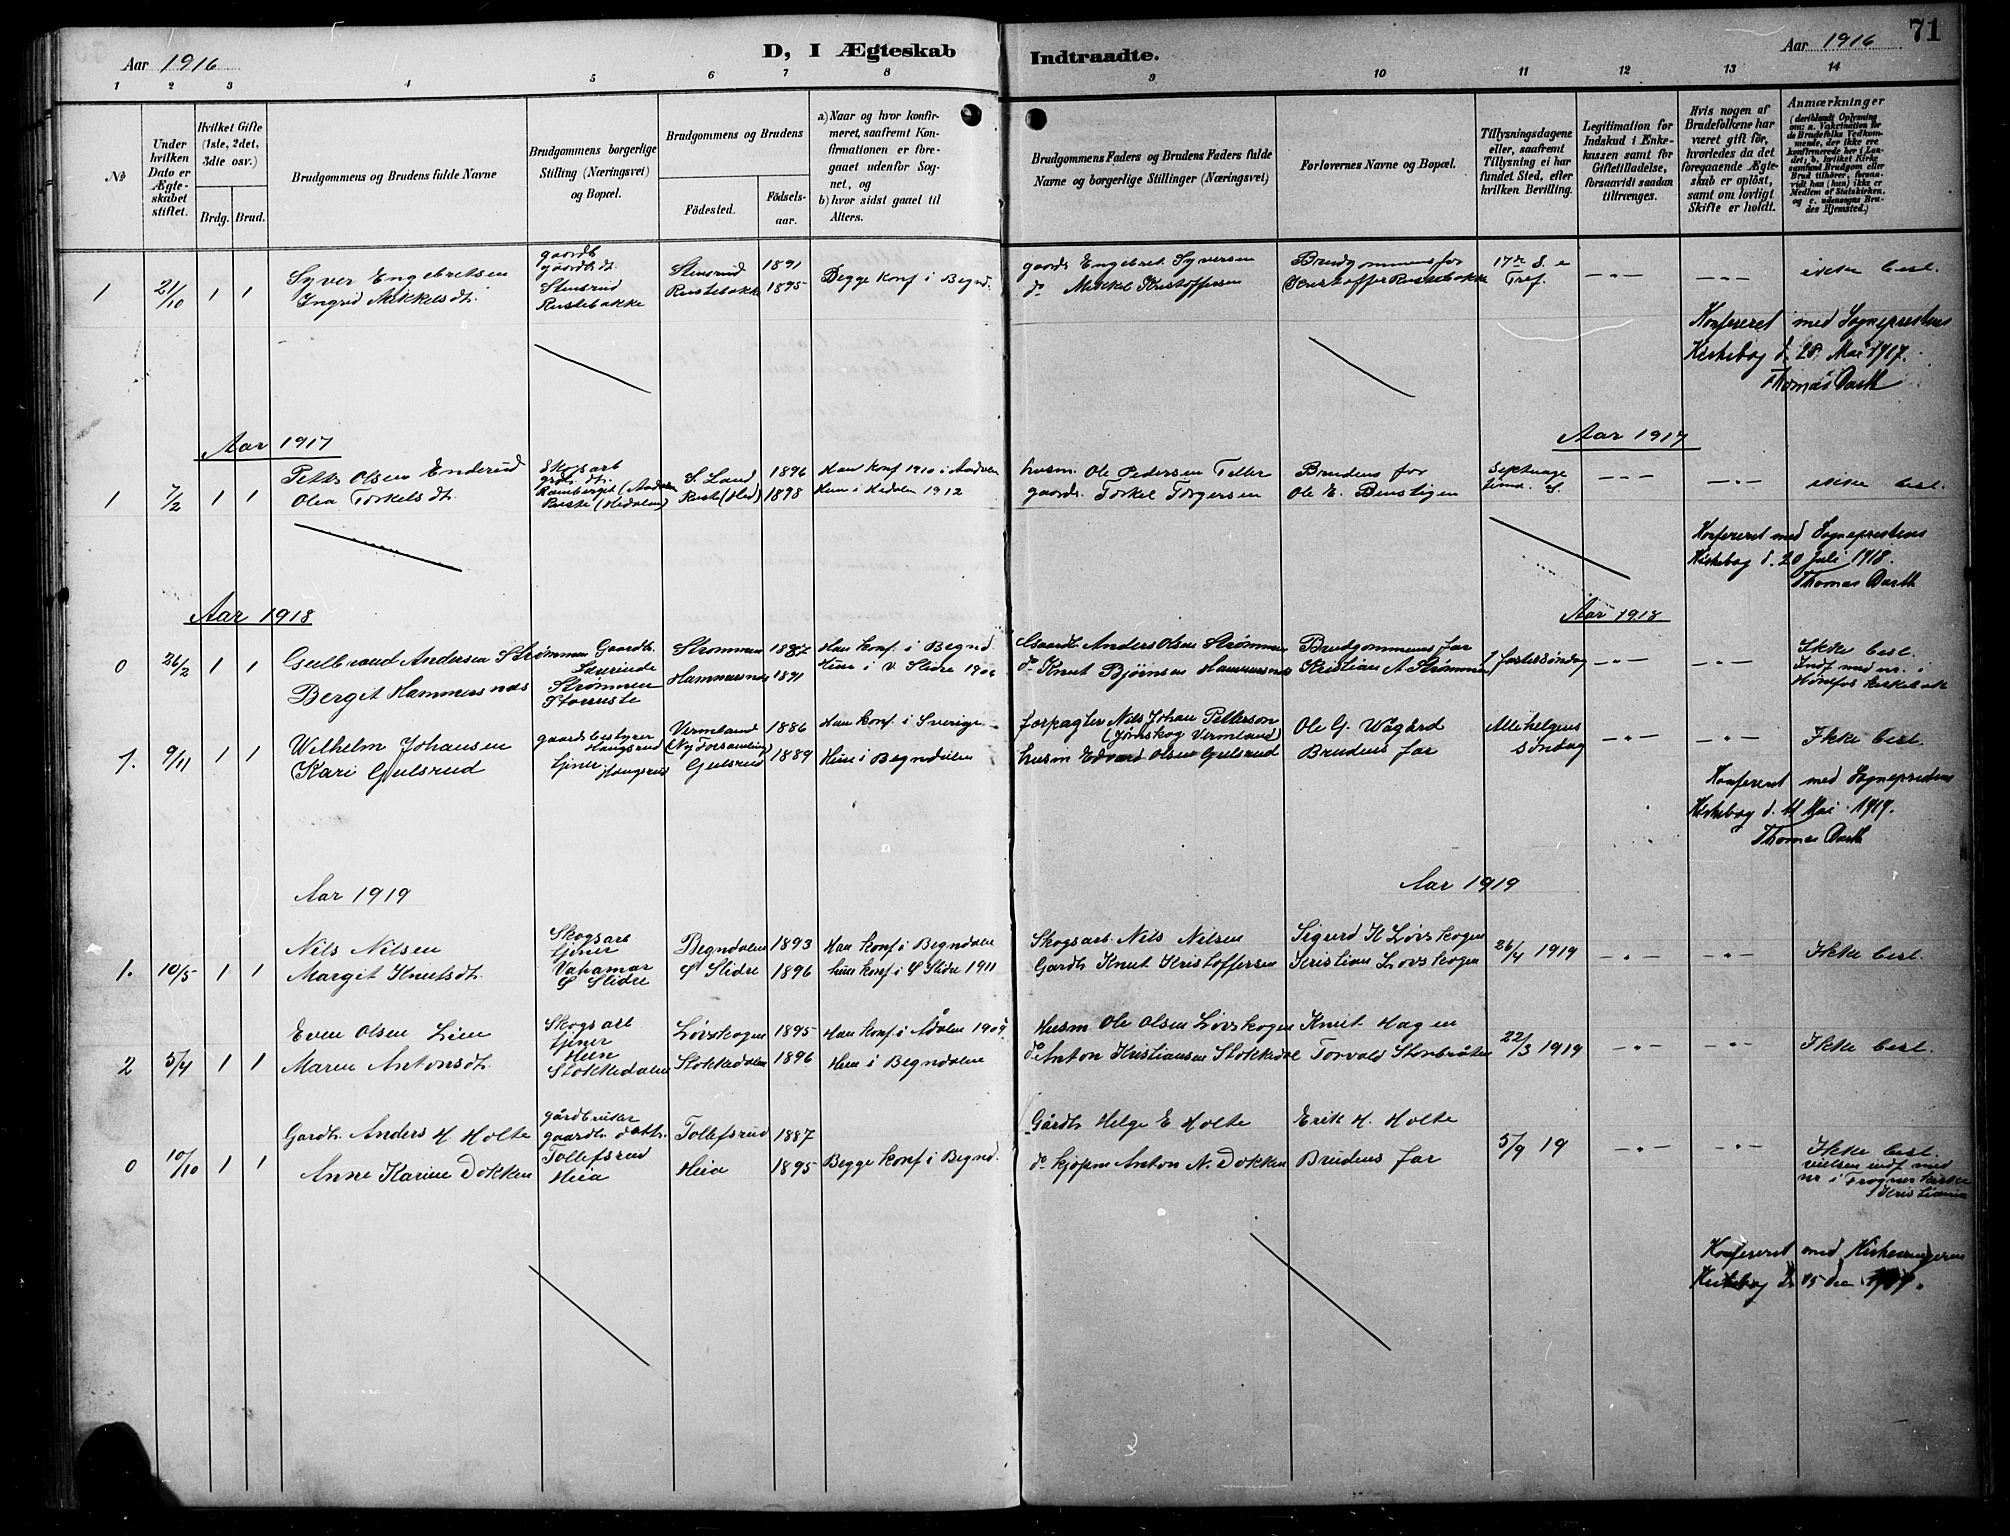 Aar 1916
D, I Ægteskab
Indtraadte.
Aar 1916
71
1 2 3 4 5 6 7 8 9 10 11 12 13 14
No
Under hvilken Dato er Ægteskabet stiftet.
Hvilket Gifte (1ste, 2det, 3die osv.)
Brdg. Brud.
Brudgommens og Brudens fulde Navne
Brudgommens borgerlige Stilling (Næringsvei) og Bopæl.
Brudgommens og Brudens
Fødested. Fødselsaar.
a) Naar og hvor konfirmeret, saafremt Konfirmationen er foregaaet udenfor Sognet, og
b) hvor sidst gaaet til Alters.
Brudgommens Faders og Brudens Faders fulde Navne og borgerlige Stillinger (Næringsvei)
Forlovernes Navne og Bopæl.
Tillysningsdagene eller, saafremt Tillysning ei har fundet Sted, efter hvilken Bevilling.
Legitimation for Indskud i Enkekassen samt for Giftetilladelse, forsaavidt saadan tiltrænges.
Hvis nogen af Brudefolkene har været gift før, hvorledes da det foregaaende Ægteskab er opløst, samt om lovligt Skifte er holdt.
Anmærkninger (deriblandt Oplysning om: a. Vakcination for de Brudefolks Vedkommende, der ikke ere konfirmerede her i Landet; b. hvilket Kirkesamfund Brudgom eller Brud tilhører, forsaavidt han (hun) ikke er Medlem af Statskirken, og c. udensogns Brudes Hjemsted.)
1 21/10 1 1
Syver Engebretsen
Ingrid Mikkelsdt.
gaardb
gaardbsdt.
Stensrud
Rustebakke
Stensrud 1891
Rustebakke 1895
Begge konf i Begnd.
gaardb Engebret Syversen
do Mikkel Kristoffersen
Brudgommens far
Kristoffer Rustebakke
17de S. e Tref.
-"- -"-
ikke besl.
Konfereret med Sogneprestens
Kirkebog d. 28. Mai 1917.
Thomas Barth
Aar 1917
Aar 1917
1 7/2 1 1
Petter Olsen Enderud
Olea Torkelsdt.
Skogsarb
grdb. dt.
Ramberget (Aadalen
Ruste (Hedalen)
S. Land 1896
Ruste (Hed) 1898
Han konf 1910 i Aadalen
Hun i Hedalen 1912
husm. Ole Pedersen Teller
gaardb. Torkel Torgersen
Brudens far
Ole E. Benstigen
Septuagesima. S.
-"- -"-
ikke besl.
Konfereret med Sogneprestens
Kirkebog d. 20 Juli 1918.
Thomas Barth
Aar 1918
Aar 1918
0 26/2 1 1
Gulbrand Andersen Strømmen
Berget Hammersnæs
Gaardb.
Strømmen
Storruste
Strømmen 1887
Hammersnæs 1891
Han konf. i Begnd.
Hun i V. Slidre 1906
Gaardb Anders Olsen Strømmen
do Knut Bjørnsen Hammersnæs
Brudgommens far
Kristian A Strømmen
1 fastesøndag
-"- -"-
Ikke besl.
Indf med nr. i
Hønefos kirkebok
1. 9/11 1 1
Wilhelm Johansen
Kari Gulsrud
gaardsbestyrer
Haugsrud
tjener Haugsrud
Vermland 1886
(Ny Forsamling)
Gulsrud 1889
Han konf. i Sverige
Hun i Begndalen
forpagter Nils Johan Petterson
(Jernskog Vermland)
husm Edvard Olsen Gulsrud
Ole G. Wågård
Brudens far
Allehelgens
søndag
-"- -"-
Ikke besl.
Konfereret med Sogneprestens
Kirkebog d. 11 Mai 1919.
Thomas Barth
Aar 1919
Aar 1919
1. 10/5 1 1
Nils Nilsen
Margit Knutsdt.
Skogsarb
tjener
Vahamar
Ø Slidre
Begndalen 1893
Ø Slidre 1896
Han konf i Begndalen
hun konf. i Ø Slidre 1911
Skogsarb. Nils Nilsen
Gardb. Knut Kristoffersen
Sigurd K Løvskogen
Kristian Løvskogen
26/4 1919
-"- -"-
Ikke besl.
2 5/4 1 1
Even Olsen Lien
Maren Antonsdt.
Skogsarb
tjener
Hien
Stokkedalen
Løvskogen 1895
Stokkedalen 1896
Han konf. i Ådalen 1909
Hun i Begndalen
Husm Ole Olsen Løvskogen
do Anton Kristiansen Stokkedal
Knut Hagen
Torvald Storbråten
22/3 1919
-"- -"-
Ikke besl.
0 10/10 1 1
Gardb. Anders H Holte
Anne Karine Dokken
gårdbruker
gaardb. datter
Tollefsrud
Heia
Tollefsrud 1887
Heia 1895
Begge konf i Begnd.
Gårdb Helge E Holte
do kjøpm Anton N. Dokken
Erik H. Holte
Brudens far
5/9 19
-"- -"-
Ikke besl.
vielsen indf med
nr i Frogner kirke
Kristiania
Konfereret med Kirkesangerens
Kirkebog d. 15 des 1919.